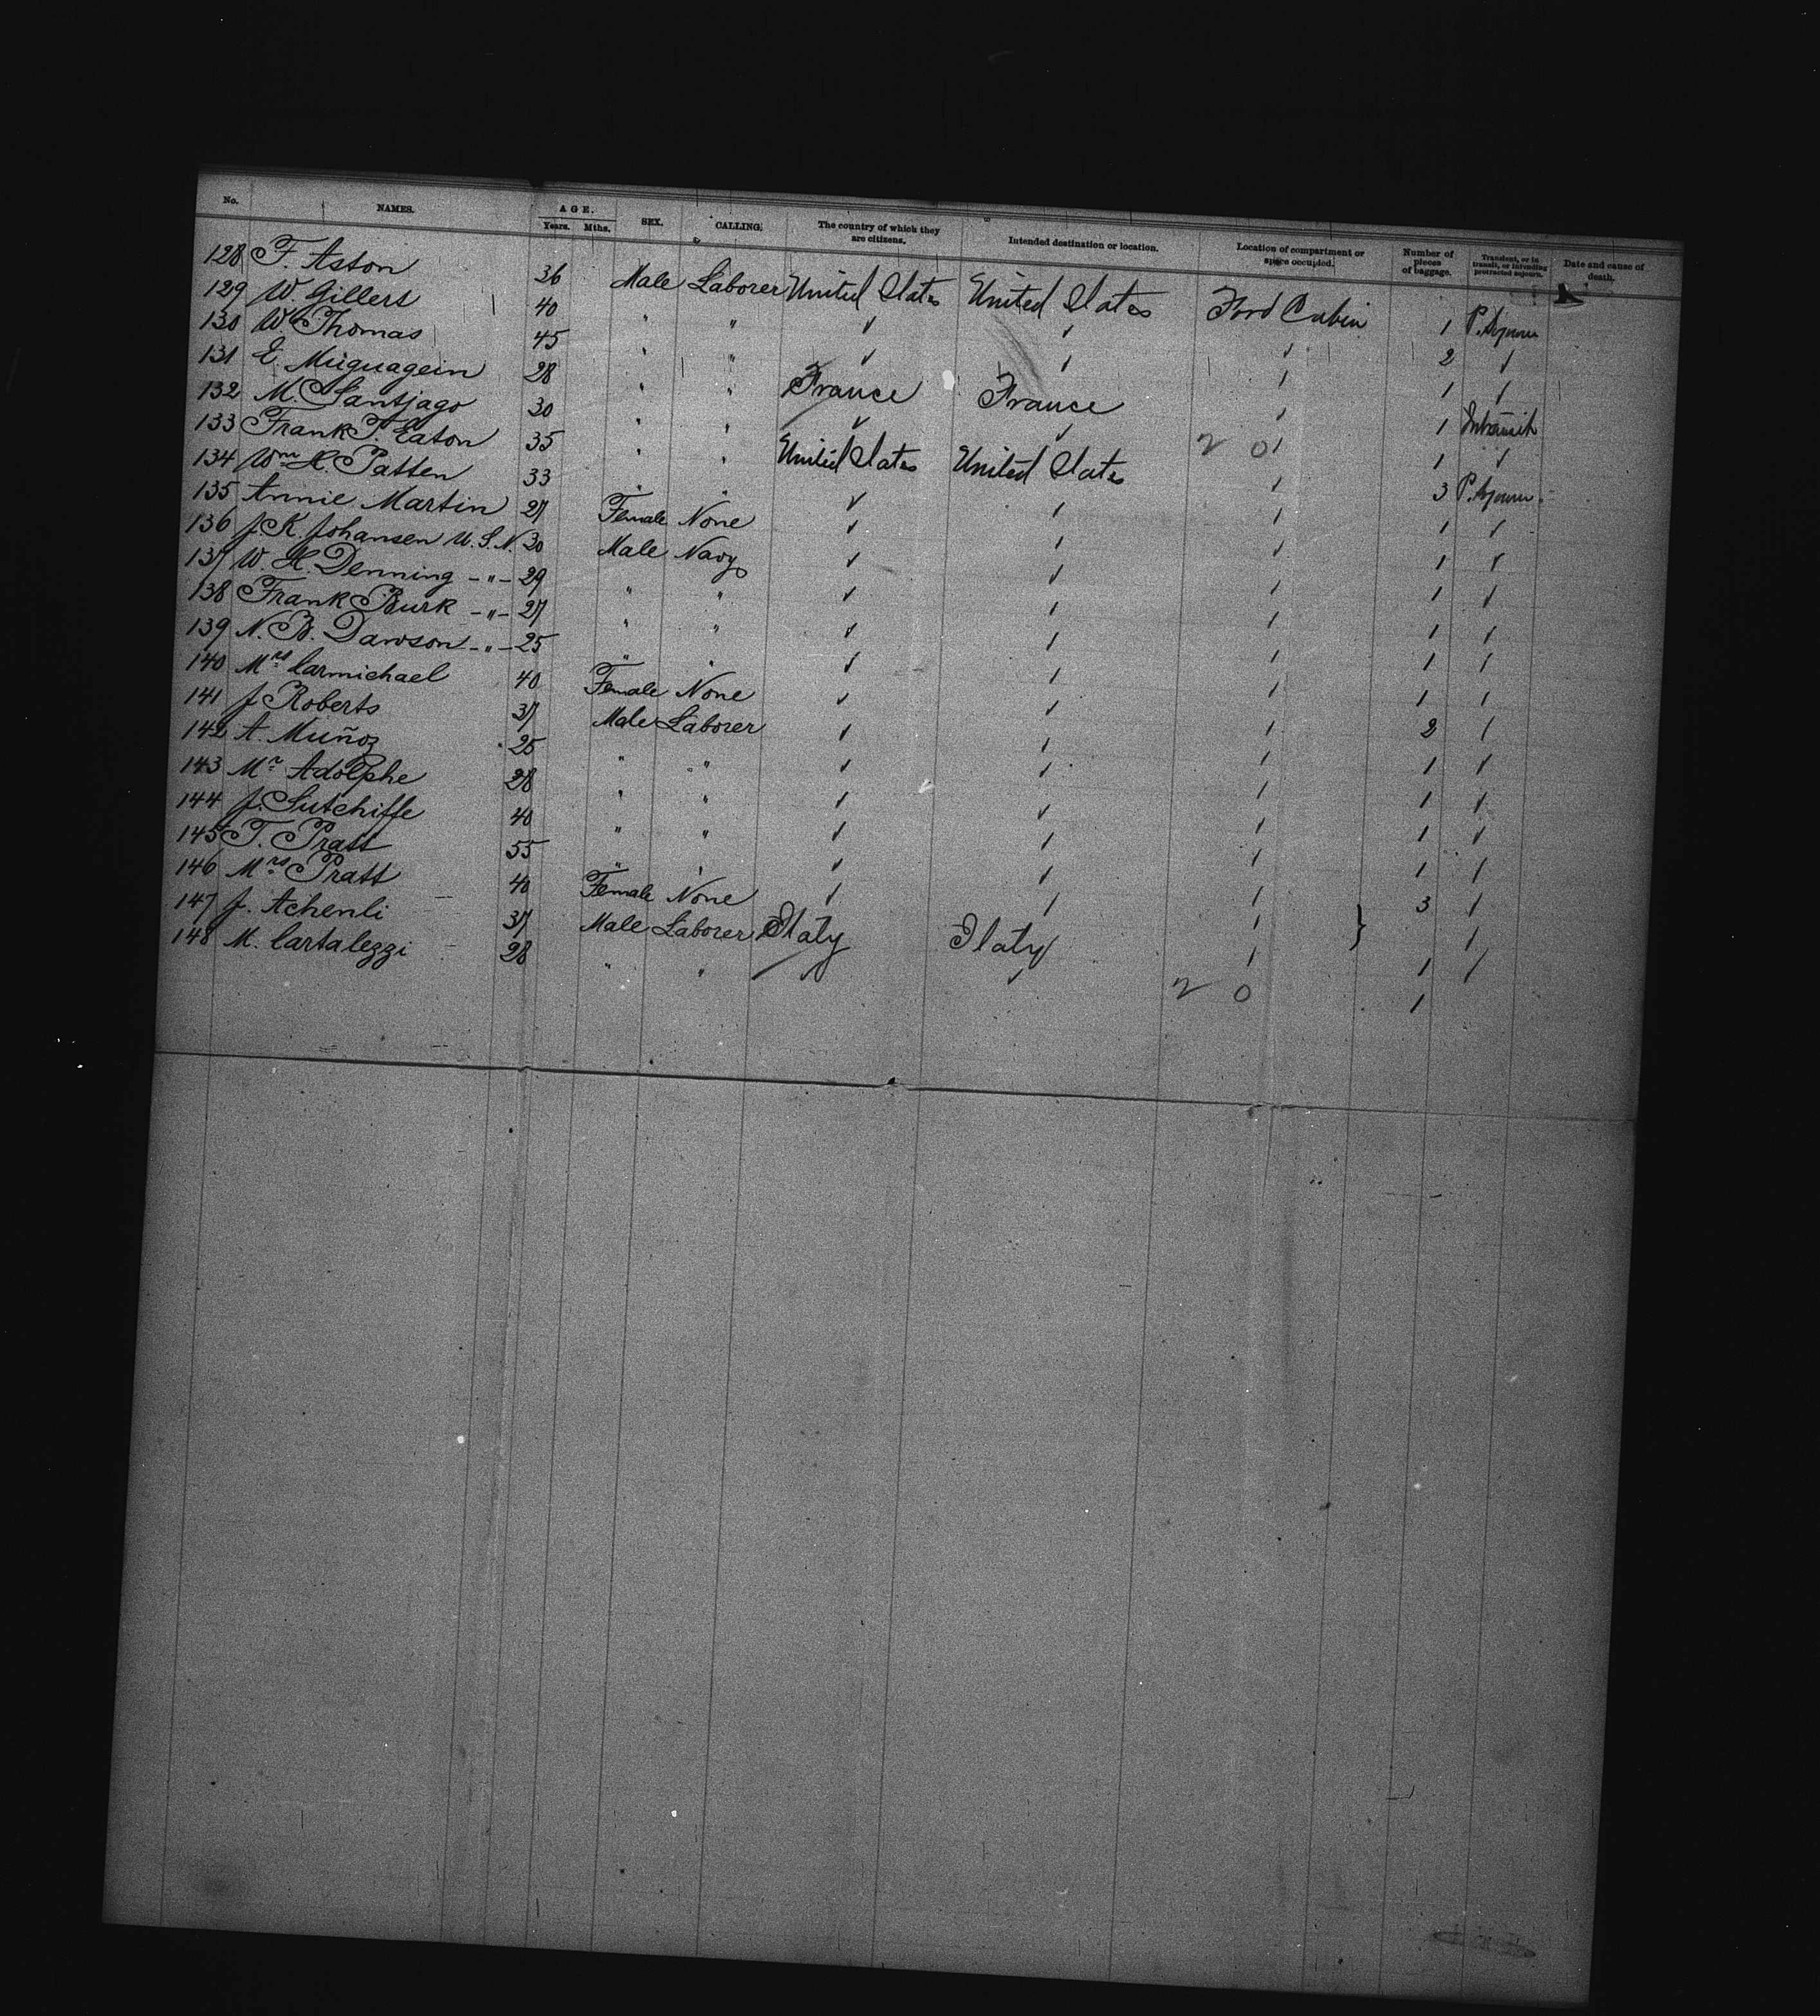 No. NAMES. AGE. Years. Mths. SEX. CALLING. The country of which they are citizens. Intended destination or location. Location of compartment or space occupied. Number of pieces of baggage. Transient, or in transit, or intending protracted sojourn. Date and cause of death.
128 F. Aston 36 Male Laborer United States United States Cabin 1
129 W. Gillers 40 " " ✓ ✓ ✓ 2 ✓
130 Wm Thomas 45 " " ✓ ✓ ✓ 1 ✓
131 E. 28 " " France France ✓ 1 Intransit
132 M. Santjago 30 " " ✓ ✓ ✓ 1 ✓
133 Frank T. Eaton 35 " " United States United States ✓ 3
134 Wm H. Patten 33 " " ✓ ✓ ✓ 1 ✓
135 Annie Martin 27 Female None ✓ ✓ ✓ 1 ✓
136 J. K. Johansen U.S.N. 30 Male Navy ✓ ✓ ✓ 1 ✓
137 W. H. Denning -"- 29 " " ✓ ✓ ✓ 1 ✓
138 Frank Burk -"- 27 " " ✓ ✓ ✓ 1 ✓
139 N. B. Dawson -"- 25 " " ✓ ✓ ✓ 1 ✓
140 Mrs Carmichael 40 Female None ✓ ✓ ✓ 2 ✓
141 J Roberts 37 Male Laborer ✓ ✓ ✓ 1 ✓
142 A. Muñoz 25 " " ✓ ✓ ✓ 1 ✓
143 Mr Adolphe 28 " " ✓ ✓ ✓ 1 ✓
144 J. Sutchiffe 40 " " ✓ ✓ ✓ 1 ✓
145 T. Pratt 55 " " ✓ ✓ ✓ 3 ✓
146 Mrs Pratt 40 Female None ✓ ✓ ✓ } ✓
147 J. Achenli 37 Male Laborer Italy Italy ✓ 1 ✓
148 M. Cartalezzi 28 " " ✓ 20 1